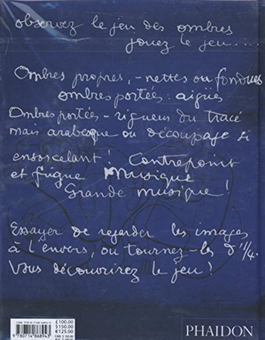 observez le jeu des ombres
jouez le jeu....
Ombres propres,- nettes ou fondues
ombres portées. aigues
Ombres portées - rigueur du tracé
mais arabesque ou découpage si
ensorcelant! Contrepoint
et fugue Musique
Grande musique!
Essayer de regarder les images
à l'envers, ou tournez-les d'1/4.
Vous découvrirez le jeu!
£100.00
$150.00
€125.00
9780714868943
PHAIDON